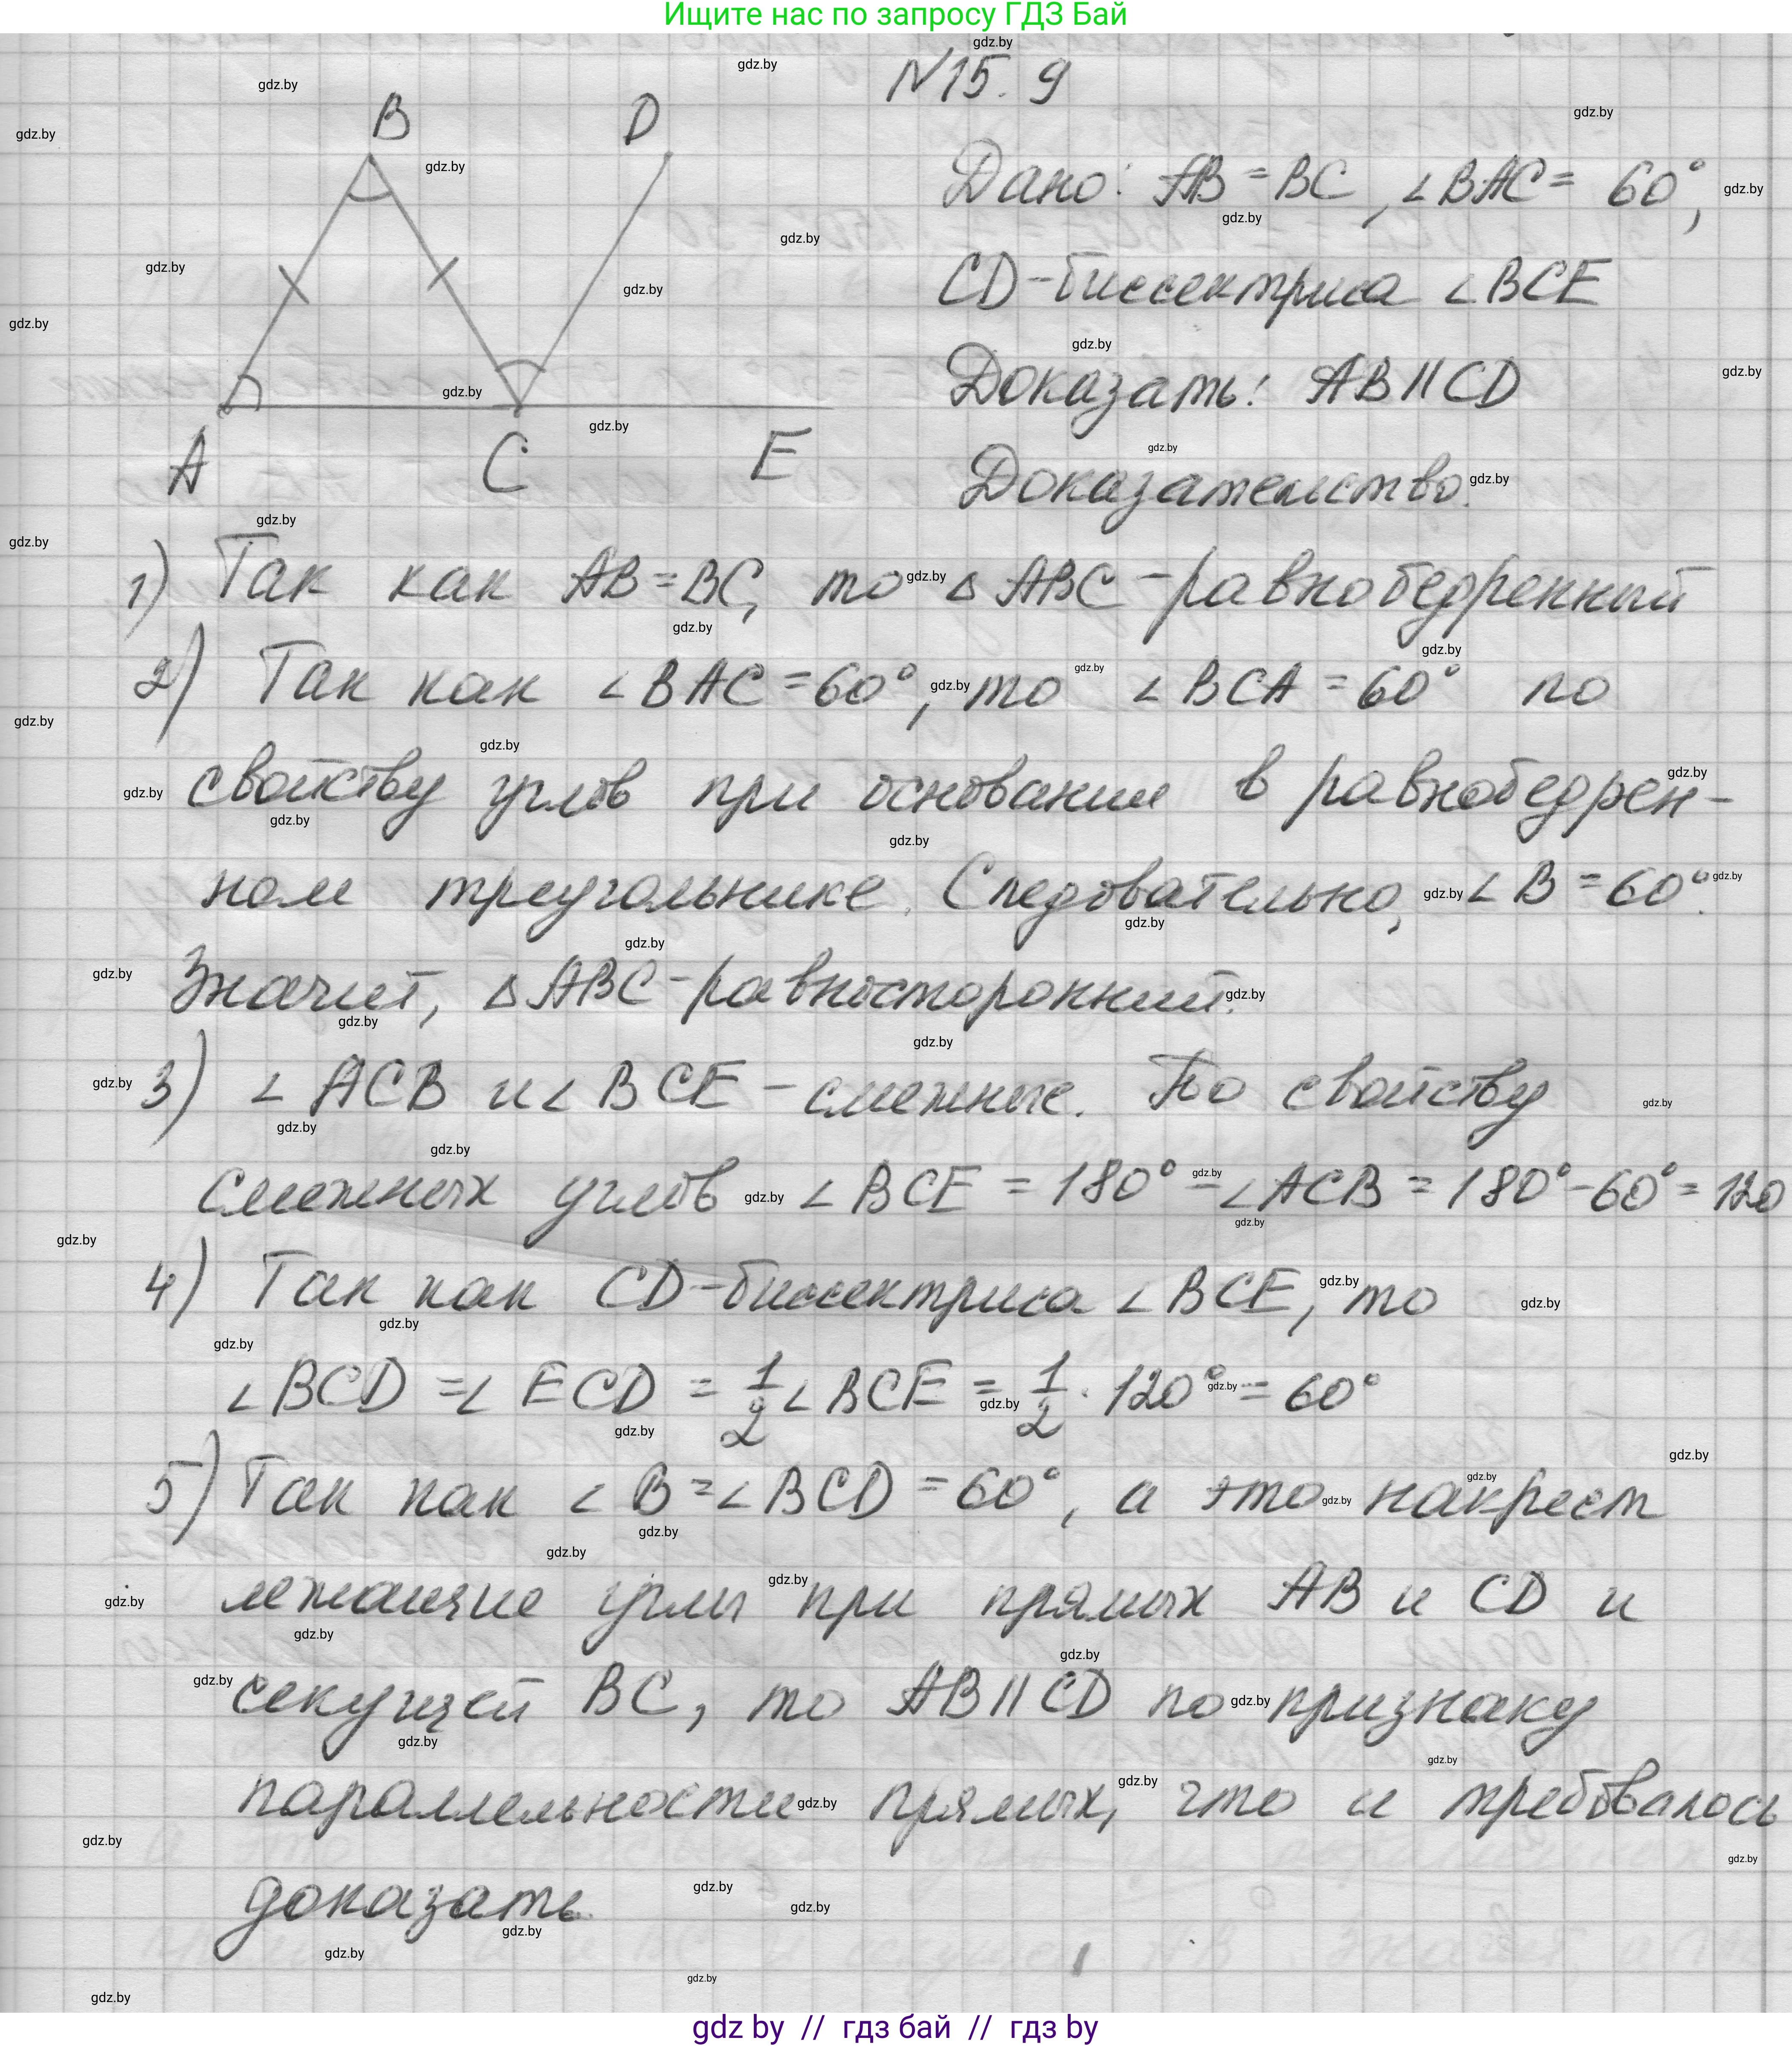 Ищите нас по запросу ГДЗ Бай
N15.9
B D
Дано: AB = BC, ∠BAC = 60°,
CD - биссектриса ∠BCE
Доказать: AB || CD
A C E
Доказательство.
1) Так как AB = BC, то △ABC - равнобедренный
2) Так как ∠BAC = 60°, то ∠BCA = 60° по
свойству углов при основании в равнобедрен-
ном треугольнике. Следовательно, ∠B = 60°.
Значит, △ABC - равносторонний.
3) ∠ACB и ∠BCE - смежные. По свойству
смежных углов ∠BCE = 180° - ∠ACB = 180° - 60° = 120
4) Так как CD - биссектриса ∠BCE, то
∠BCD = ∠ECD = 1/2 ∠BCE = 1/2 · 120° = 60°
5) Так как ∠B = ∠BCD = 60°, а это накрест
лежащие углы при прямых AB и CD и
секущей BC, то AB || CD по признаку
параллельности прямых, что и требовалось
доказать
gdz by // гдз бай // гдз by